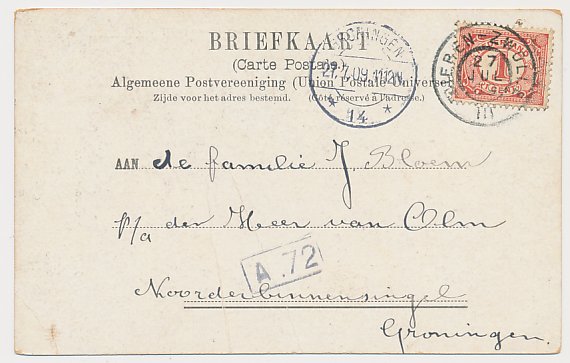 BRIEFKAART
(Carte Postale)
Algemeene Postvereeniging (Union Postale Universelle)
Zijde voor het adres bestemd. (Côté réservé à l'adresse.)
GRONINGEN
27.7.09. 11-12V.
14
27
JUL
1
AAN de familie J. Bloem
p/a der Heer van Olm
A.72
Noorderbinnensingel
Groningen.